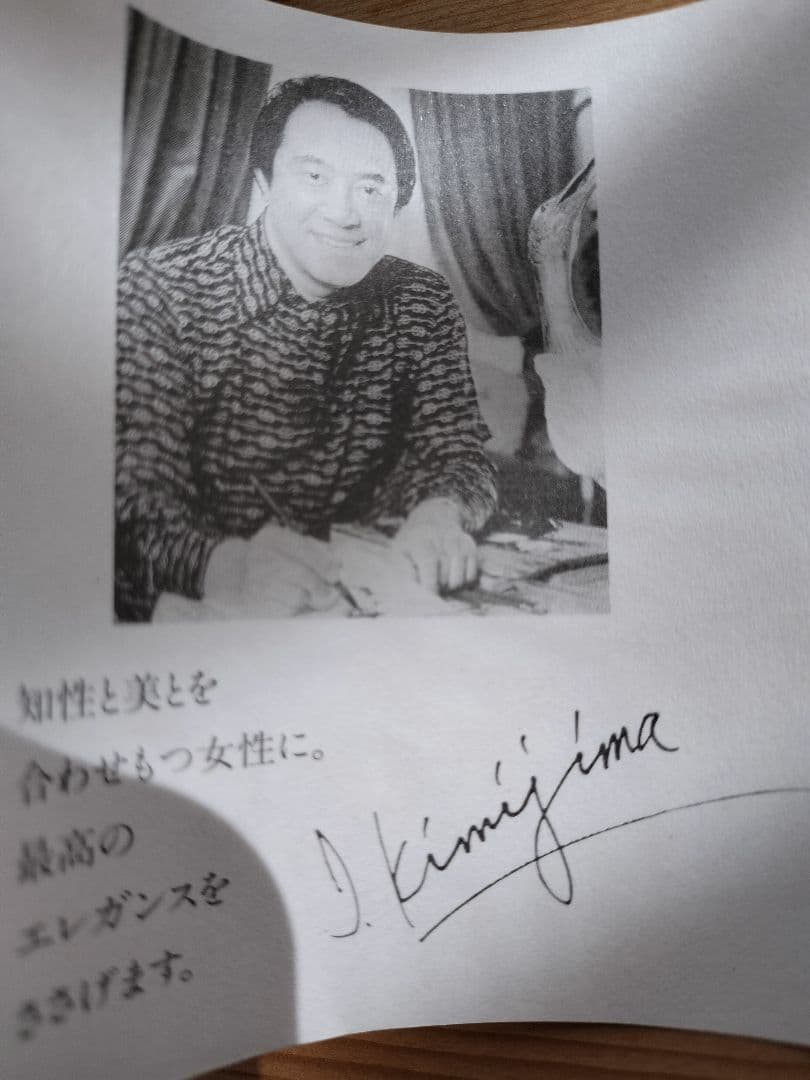 知性と美とを
合わせもつ女性に。
最高の
エレガンスを
ささげます。
I. Kimijima